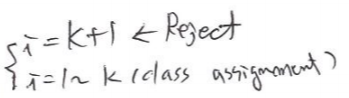 i = k+1 ← Reject
i = 1 ~ k (class assignment)